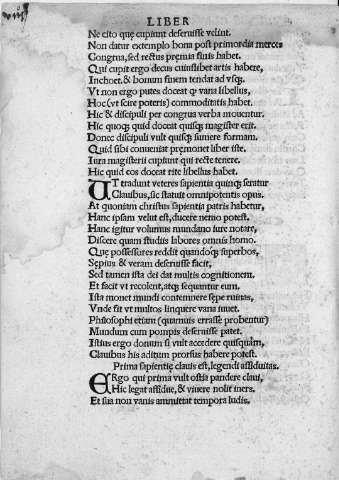 LIBER
Ne cito quę cupiunt deseruisse velint.
Non datur extemplo bona post primordia merces
Congrua, sed rectus pręmia finis habet.
Qui cupit ergo decus cuiuslibet artis habere,
Inchoet. & bonum finem tendat ad vsq3.
Vt non ergo putes doceat qͥ vana libellus,
Hoc (vt scire poteris) commoditatis habet.
Hic & discipuli per congrua verba mouentur.
Hic quoq3 quid doceat quisq3 magister erit.
Donec discipuli vult quisq3 sumere formam.
Quid sibi conueniat pręmonet liber iste.
Iura magisterij cupiunt qui recte tenere.
Hic quid eos doceat rite libellus habet.
UT tradunt veteres sapientia quinq3 seratur
Clauibus, sic statuit omnipotentis opus.
At quoniam christus sapientia patris habetur,
Hanc ipsam velut est, ducere nemo potest.
Hanc igitur volumus mundano iure notare,
Discere quam studiis labores omnis homo.
Quę possessores reddit quandoq3 superbos,
Sępius & veram deseruisse facit,
Sed tamen ista dei dat multis cognitionem.
Et facit vt recolent, atq3 sequantur eum.
Ista monet mundi contemnere sępe ruinas,
Vnde fit vt multos linquere vana iuuet.
Philosophi etiam (quamuis errasse probentur)
Mundum cum pompis deseruisse patet.
Istius ergo donum si vult accedere quisquam,
Clauibus his aditum prorsus habere potest.
Prima sapientię clauis est, legendi assiduitas.
ERgo qui prima vult ostia pandere claui,
Hic legat assidue, & viuere nolit iners.
Et sua non vanis ammittat tempora ludis.